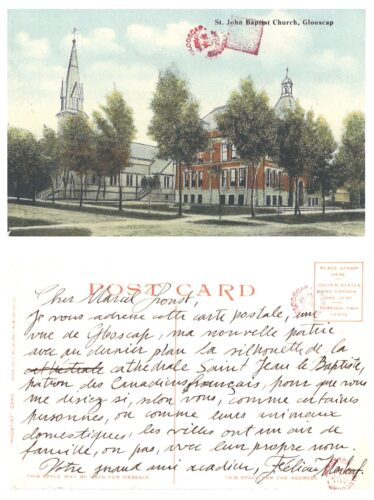 St. John Baptist Church, Glooscap
GLOOSCAP
POST CARD
PLACE STAMP
HERE
UNITED STATES
AND CANADA
ONE CENT
FOREIGN TWO
CENTS
GLOOSCAP
Cher Marcel Proust,
Je vous adresse cette carte postale, une
vue de Glooscap, ma nouvelle patrie
avec au dernier plan la silhouette de la
cathédrale Saint Jean le Baptiste,
patron des Canadiens français, pour que vous
me disiez si, selon vous, comme certaines
personnes, ou comme leurs animaux
domestiques, les villes ont un air de
famille, ou pas, avec leur propre nom.
Votre grand ami acadien,
THIS SPACE MAY BE USED FOR MESSAGE
THIS SPACE FOR THE ADDRESS